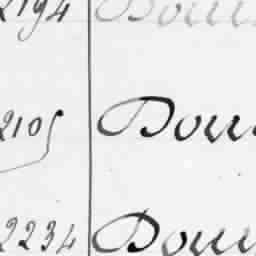 2194 Dou
2105 Dou
2234 Dou